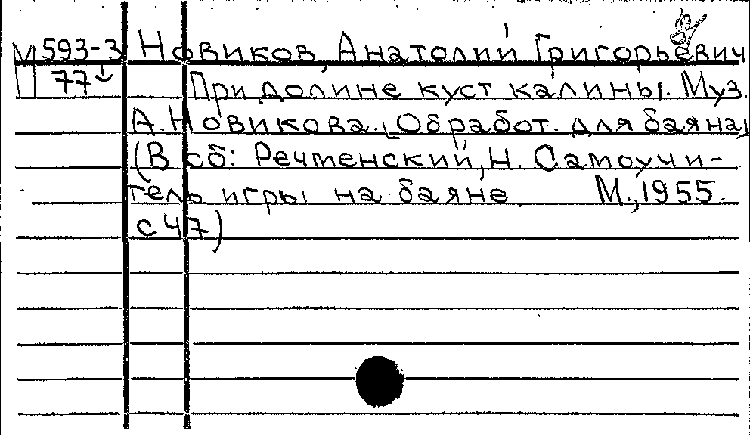 М 593-3 Новиков, Анатолий Григорьевич
П 77 При долине куст калины. Муз.
А. Новикова. [Обработ. для баяна]
(В сб: Речменский, Н. Самоучи-
тель игры на баяне. М., 1955.
с 47)